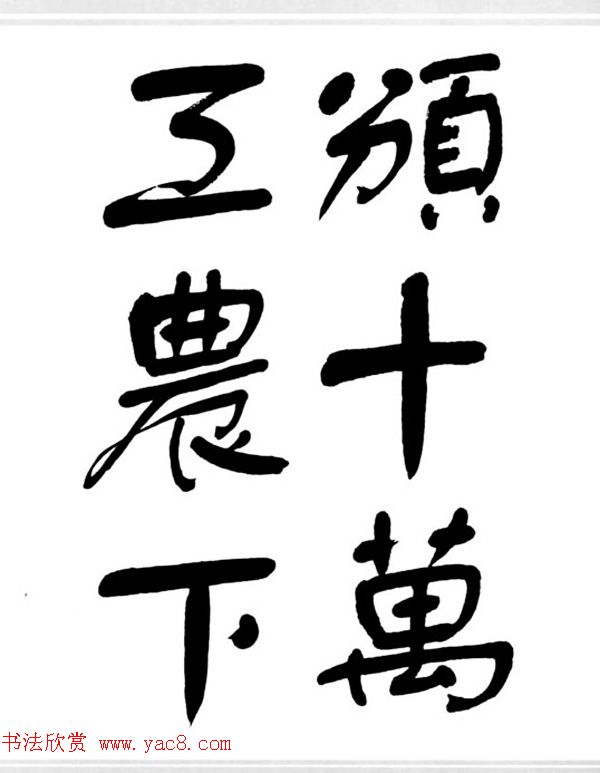 頒十萬
工農下
书法欣赏 www.yac8.com